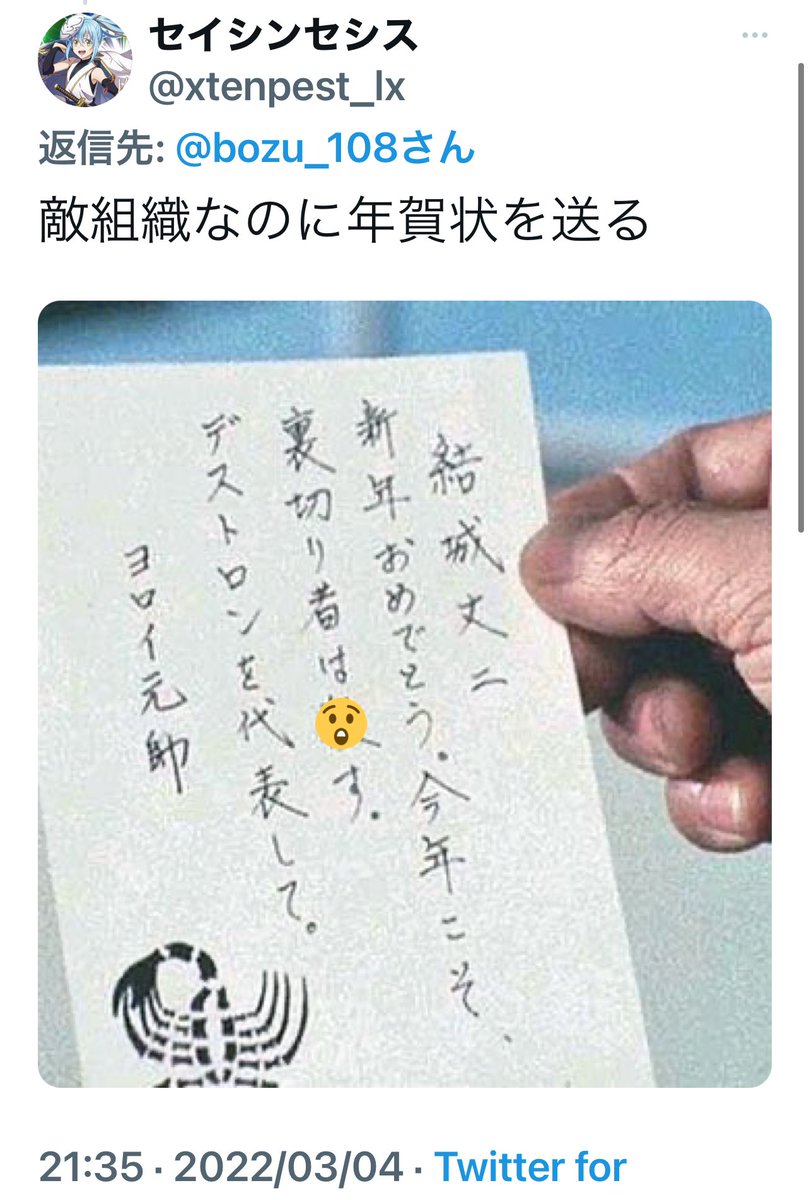 セイシンセシス
@xtenpest_lx
返信先: @bozu_108さん
敵組織なのに年賀状を送る
結城丈二
新年おめでとう。今年こそ、
裏切り者は す。
デストロンを代表して。
ヨロイ元帥
21:35 · 2022/03/04 · Twitter for